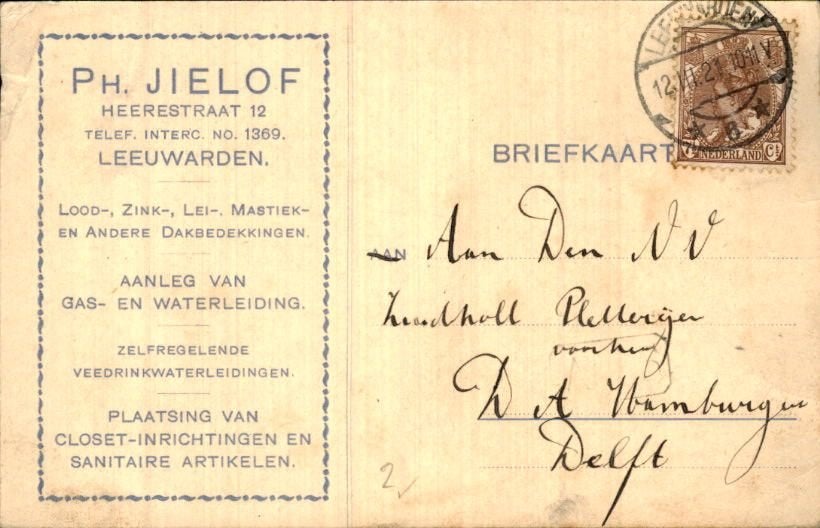 PH. JIELOF
HEERESTRAAT 12
TELEF. INTERC. NO. 1369.
LEEUWARDEN.
LOOD-, ZINK-, LEI-. MASTIEK-
EN ANDERE DAKBEDEKKINGEN.
AANLEG VAN
GAS- EN WATERLEIDING.
ZELFREGELENDE
VEEDRINKWATERLEIDINGEN.
PLAATSING VAN
CLOSET-INRICHTINGEN EN
SANITAIRE ARTIKELEN.
LEEUWARDEN
12.III.21.10-11 V
NEDERLAND Ct
BRIEFKAART
AAN Aan Den N V
Pletterijen
voorheen
D A Hamburger
Delft
2